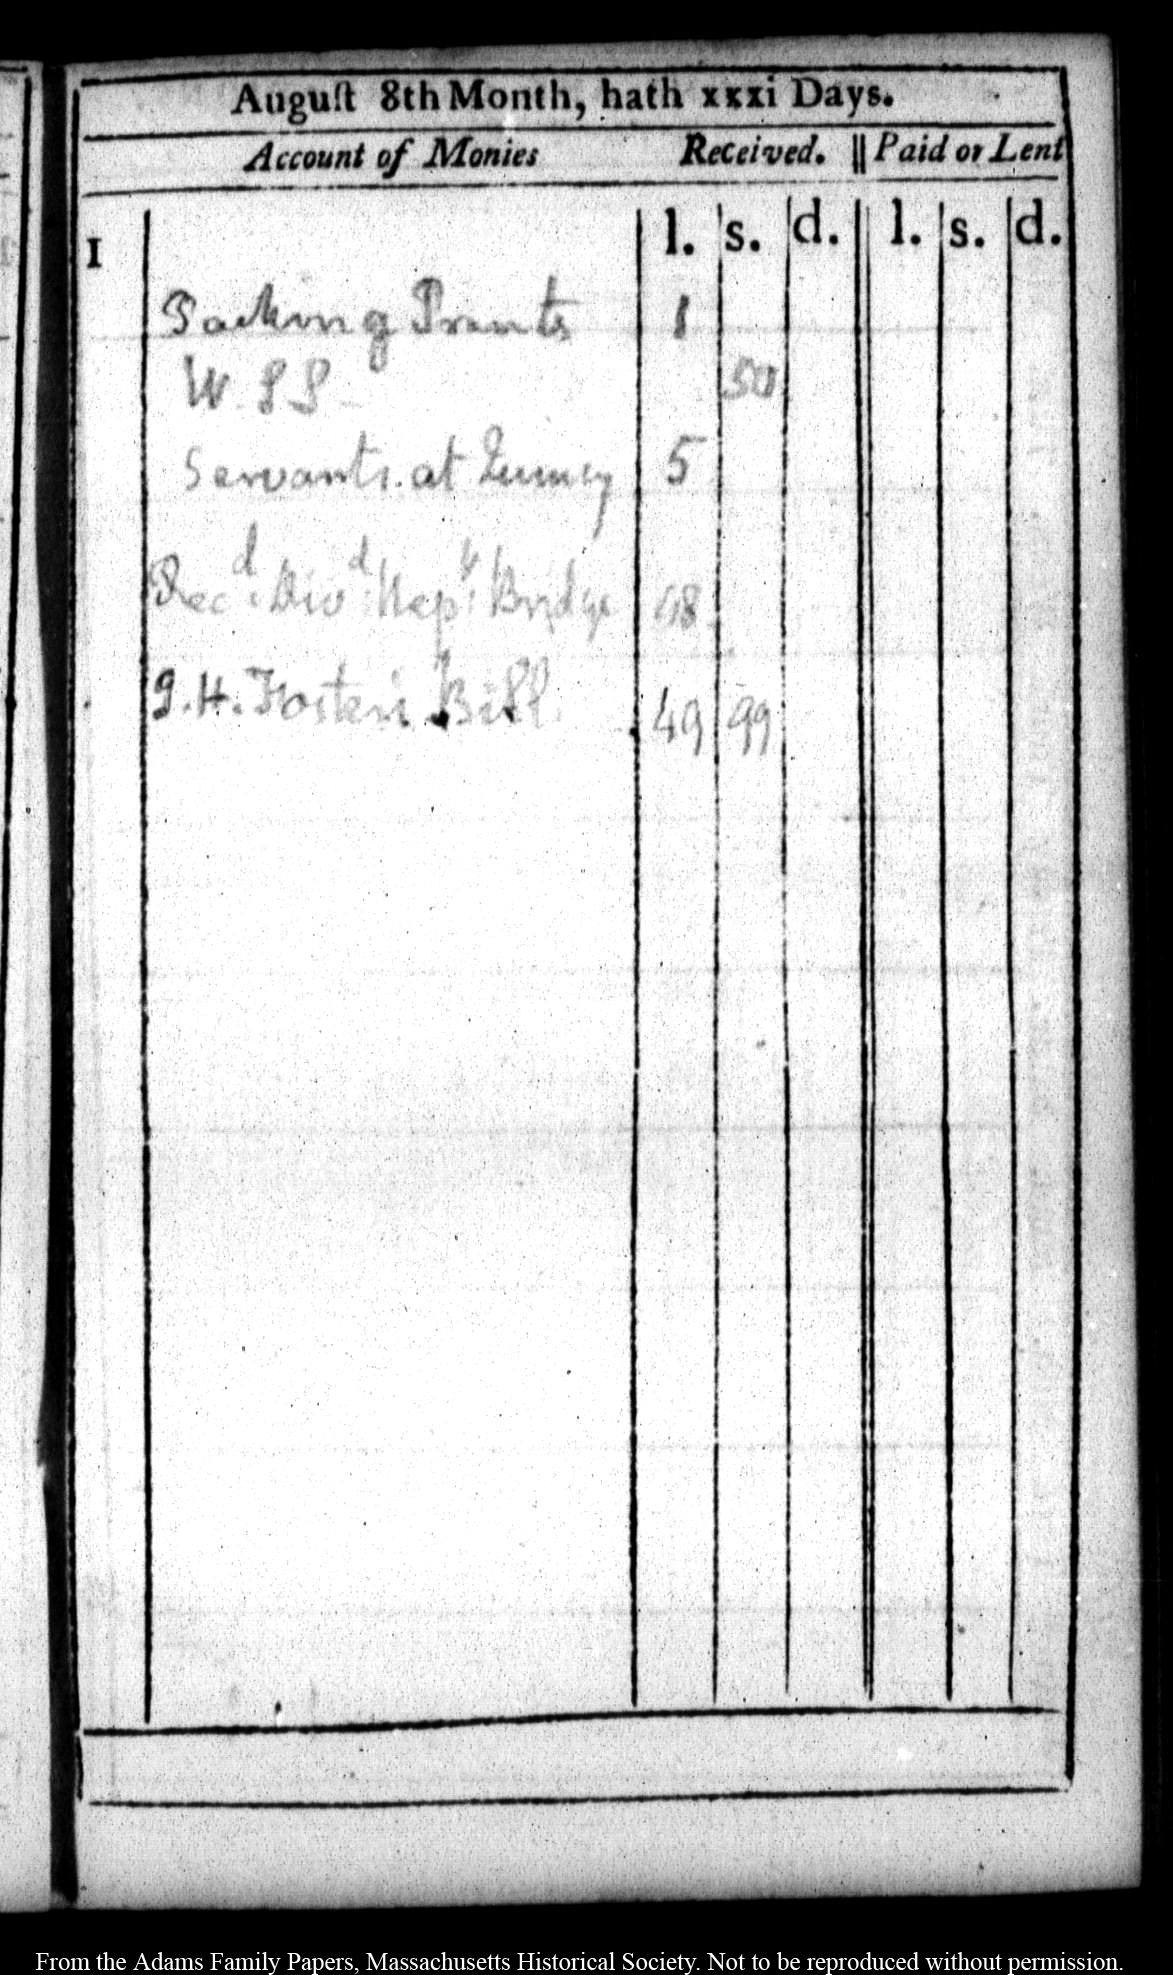 Auguſt 8th Month, hath xxxi Days.
Account of Monies Received. || Paid or Lent
l. s. d. l. s. d.
1
Packing Prints 1
W. S S 50
Servants. at Quincy 5
Rec.d Div.d Nep.t Bridge 48
I. H. Foster's Bill. 49 99
From the Adams Family Papers, Massachusetts Historical Society. Not to be reproduced without permission.